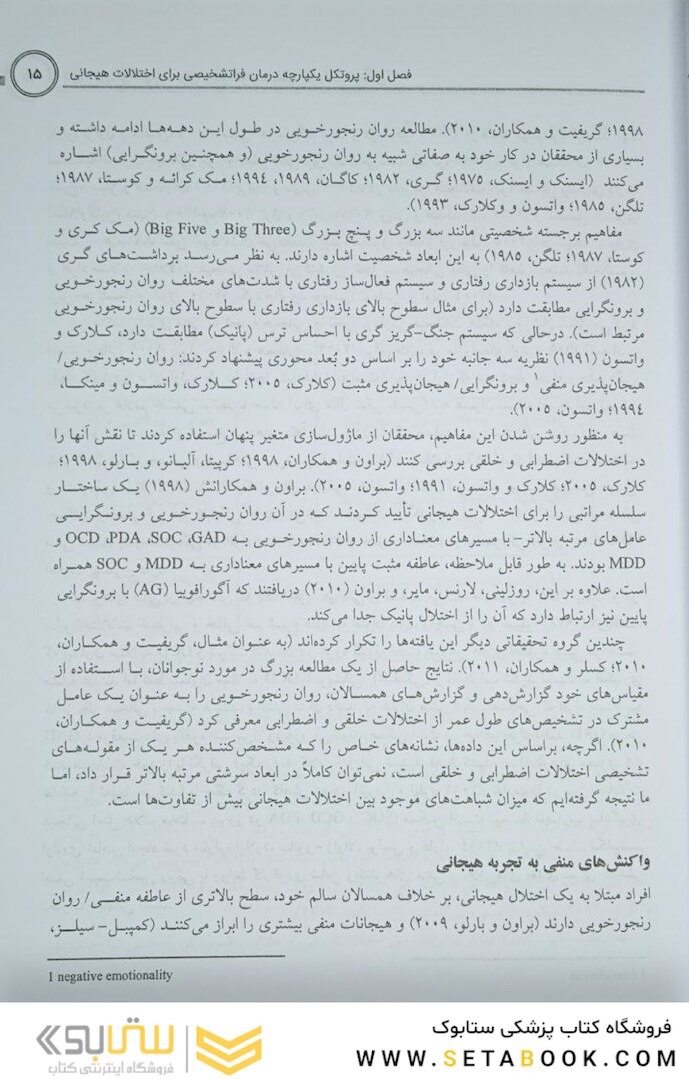 فصل اول: پروتکل یکپارچه درمان فراتشخیصی برای اختلالات هیجانی
۱۵
۱۹۹۸؛ گریفیت و همکاران، ۲۰۱۰). مطالعه روان رنجورخویی در طول این دهه‌ها ادامه داشته و
بسیاری از محققان در کار خود به صفاتی شبیه به روان رنجورخویی (و همچنین برونگرایی) اشاره
می‌کنند (ایسنک و ایسنک، ۱۹۷۵؛ گری، ۱۹۸۲؛ کاگان، ۱۹۸۹، ۱۹۹۴؛ مک کرائه و کوستا، ۱۹۸۷؛
تلگن، ۱۹۸۵؛ واتسون و وکلارک، ۱۹۹۳).
مفاهیم برجسته شخصیتی مانند سه بزرگ و پنج بزرگ (Big Three و Big Five) (مک کری و
کوستا، ۱۹۸۷؛ تلگن، ۱۹۸۵) به این ابعاد شخصیت اشاره دارند. به نظر می‌رسد برداشت‌های گری
(۱۹۸۲) از سیستم بازداری رفتاری و سیستم فعال‌ساز رفتاری با شدت‌های مختلف روان رنجورخویی
و برونگرایی مطابقت دارد (برای مثال سطوح بالای بازداری رفتاری با سطوح بالای روان رنجورخویی
مرتبط است). درحالی که سیستم جنگ-گریز گری با احساس ترس (پانیک) مطابقت دارد، کلارک و
واتسون (۱۹۹۱) نظریه سه جانبه خود را بر اساس دو بُعد محوری پیشنهاد کردند: روان رنجورخویی/
هیجان‌پذیری منفی۱ و برونگرایی/ هیجان‌پذیری مثبت (کلارک، ۲۰۰۵؛ کلارک، واتسون و مینکا،
۱۹۹۴؛ واتسون، ۲۰۰۵).
به منظور روشن شدن این مفاهیم، محققان از ماژول‌سازی متغیر پنهان استفاده کردند تا نقش آنها را
در اختلالات اضطرابی و خلقی بررسی کنند (براون و همکاران، ۱۹۹۸؛ کرپیتا، آلبانو، و بارلو، ۱۹۹۸؛
کلارک، ۲۰۰۵؛ کلارک و واتسون، ۱۹۹۱؛ واتسون، ۲۰۰۵). براون و همکارانش (۱۹۹۸) یک ساختار
سلسله مراتبی را برای اختلالات هیجانی تأیید کردند که در آن روان رنجورخویی و برونگرایی
عامل‌های مرتبه بالاتر- با مسیرهای معناداری از روان رنجورخویی به OCD ،PDA ،SOC ،GAD و
MDD بودند. به طور قابل ملاحظه، عاطفه مثبت پایین با مسیرهای معناداری به MDD و SOC همراه
است. علاوه بر این، روزلینی، لارنس، مایر، و براون (۲۰۱۰) دریافتند که آگورافوبیا (AG) با برونگرایی
پایین نیز ارتباط دارد که آن را از اختلال پانیک جدا می‌کند.
چندین گروه تحقیقاتی دیگر این یافته‌ها را تکرار کرده‌اند (به عنوان مثال، گریفیت و همکاران،
۲۰۱۰؛ کسلر و همکاران، ۲۰۱۱). نتایج حاصل از یک مطالعه بزرگ در مورد نوجوانان، با استفاده از
مقیاس‌های خود گزارش‌دهی و گزارش‌های همسالان، روان رنجورخویی را به عنوان یک عامل
مشترک در تشخیص‌های طول عمر از اختلالات خلقی و اضطرابی معرفی کرد (گریفیت و همکاران،
۲۰۱۰). اگرچه، براساس این داده‌ها، نشانه‌های خاص را که مشخص‌کننده هر یک از مقوله‌های
تشخیصی اختلالات اضطرابی و خلقی است، نمی‌توان کاملاً در ابعاد سرشتی مرتبه بالاتر قرار داد، اما
ما نتیجه گرفته‌ایم که میزان شباهت‌های موجود بین اختلالات هیجانی بیش از تفاوت‌ها است.
واکنش‌های منفی به تجربه هیجانی
افراد مبتلا به یک اختلال هیجانی، بر خلاف همسالان سالم خود، سطح بالاتری از عاطفه منفی/ روان
رنجورخویی دارند (براون و بارلو، ۲۰۰۹) و هیجانات منفی بیشتری را ابراز می‌کنند (کمپبل- سیلز،
1 negative emotionality
فروشگاه کتاب پزشکی ستابوک
WWW.SETABOOK.COM
ستابوک
فروشگاه اینترنتی کتاب